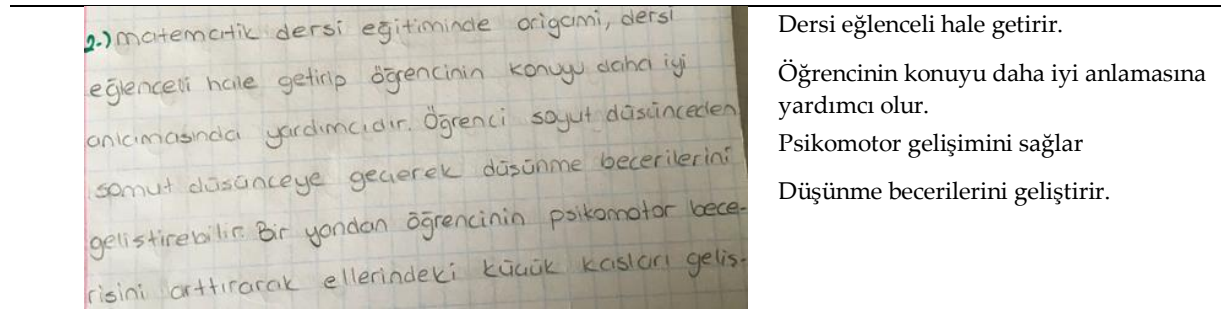 2.) matematik dersi eğitiminde origami, dersi
eğlenceli hale getirip öğrencinin konuyu daha iyi
anlamasında yardımcıdır. Öğrenci soyut düşünceden
somut düşünceye geçerek düşünme becerilerini
geliştirebilir. Bir yandan öğrencinin psikomotor bece-
risini arttırarak ellerindeki küçük kasları geliş-
Dersi eğlenceli hale getirir.
Öğrencinin konuyu daha iyi anlamasına
yardımcı olur.
Psikomotor gelişimini sağlar
Düşünme becerilerini geliştirir.